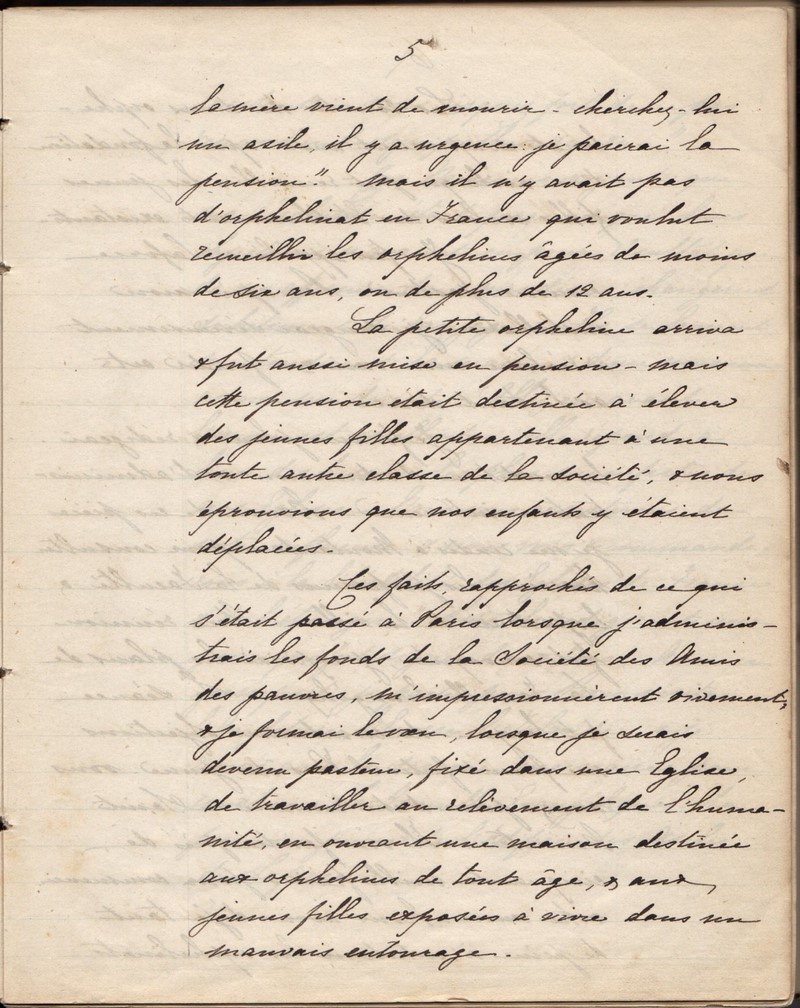 5
la mère vient de mourir - cherchez-lui
un asile, il y a urgence: je paierai la
pension". mais il n'y avait pas
d'orphelinat en France qui voulut
recueillir les orphelines âgées de moins
de six ans, ou de plus de 12 ans.
La petite orpheline arriva
& fut aussi mise en pension - mais
cette pension était destinée à élever
des jeunes filles appartenant à une
toute autre classe de la société, & nous
éprouvions que nos enfants y étaient
déplacées.
Ces faits, rapprochés de ce qui
s'était passé à Paris lorsque j'adminis-
trais les fonds de la Société des Amis
des pauvres, m'impressionnèrent vivement,
& je formai le vœu, lorsque je serais
devenu pasteur, fixé dans une Eglise,
de travailler au relèvement de l'huma-
nité, en ouvrant une maison destinée
aux orphelines de tout âge, & aux
jeunes filles exposées à vivre dans un
mauvais entourage.